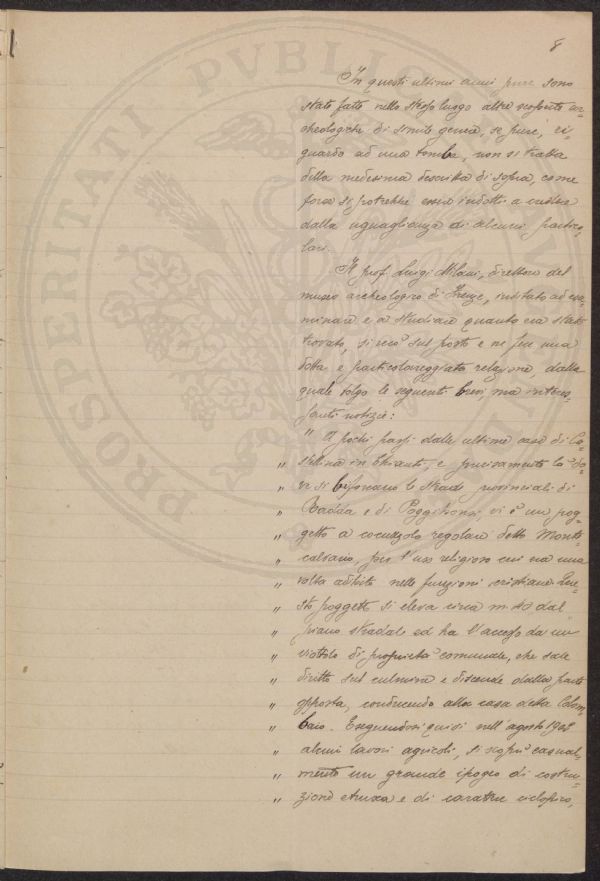 8
In questi ultimi anni pure sono
state fatte nello stesso luogo altre scoperte ar-
cheologiche di simile genere, se pure, ri-
guardo ad una tomba, non si tratta
della medesima descritta di sopra, come
forse si potrebbe essere indotti a credere
dalla uguaglianza di alcuni partico-
lari.
Il prof. Luigi Milani, direttore del
museo archeologico di Firenze, invitato ad esa-
minare e a studiare quanto era stato
trovato, si recò sul posto e ne fece una
dotta e particolareggiata relazione, dalla
quale tolgo le seguenti brevi ma interes-
santi notizie:
" A pochi passi dalle ultime case di Ca-
" stellina in Chianti, e precisamente là do-
" ve si biforcano le strade provinciali di
" Radda e di Poggibonsi, vi è un pog-
" getto a cocuzzolo regolare detto Monte-
" calvario, per l'uso religioso cui era una
" volta adibito nelle funzioni cristiane. Que-
" sto poggetto si eleva circa m. 40 dal
" piano stradale ed ha l'accesso da un
" viottolo di proprietà comunale, che sale
" diritto sul culmine e discende dalla parte
" opposta, conducendo alla casa detta Colom-
" baio. Eseguendosi quivi nell'agosto 1902
" alcuni lavori agricoli, si scoprì casual-
" mente un grande ipogeo di costru-
" zione etrusca e di carattere ciclopico,
PROSPERITATI PVBLICAE